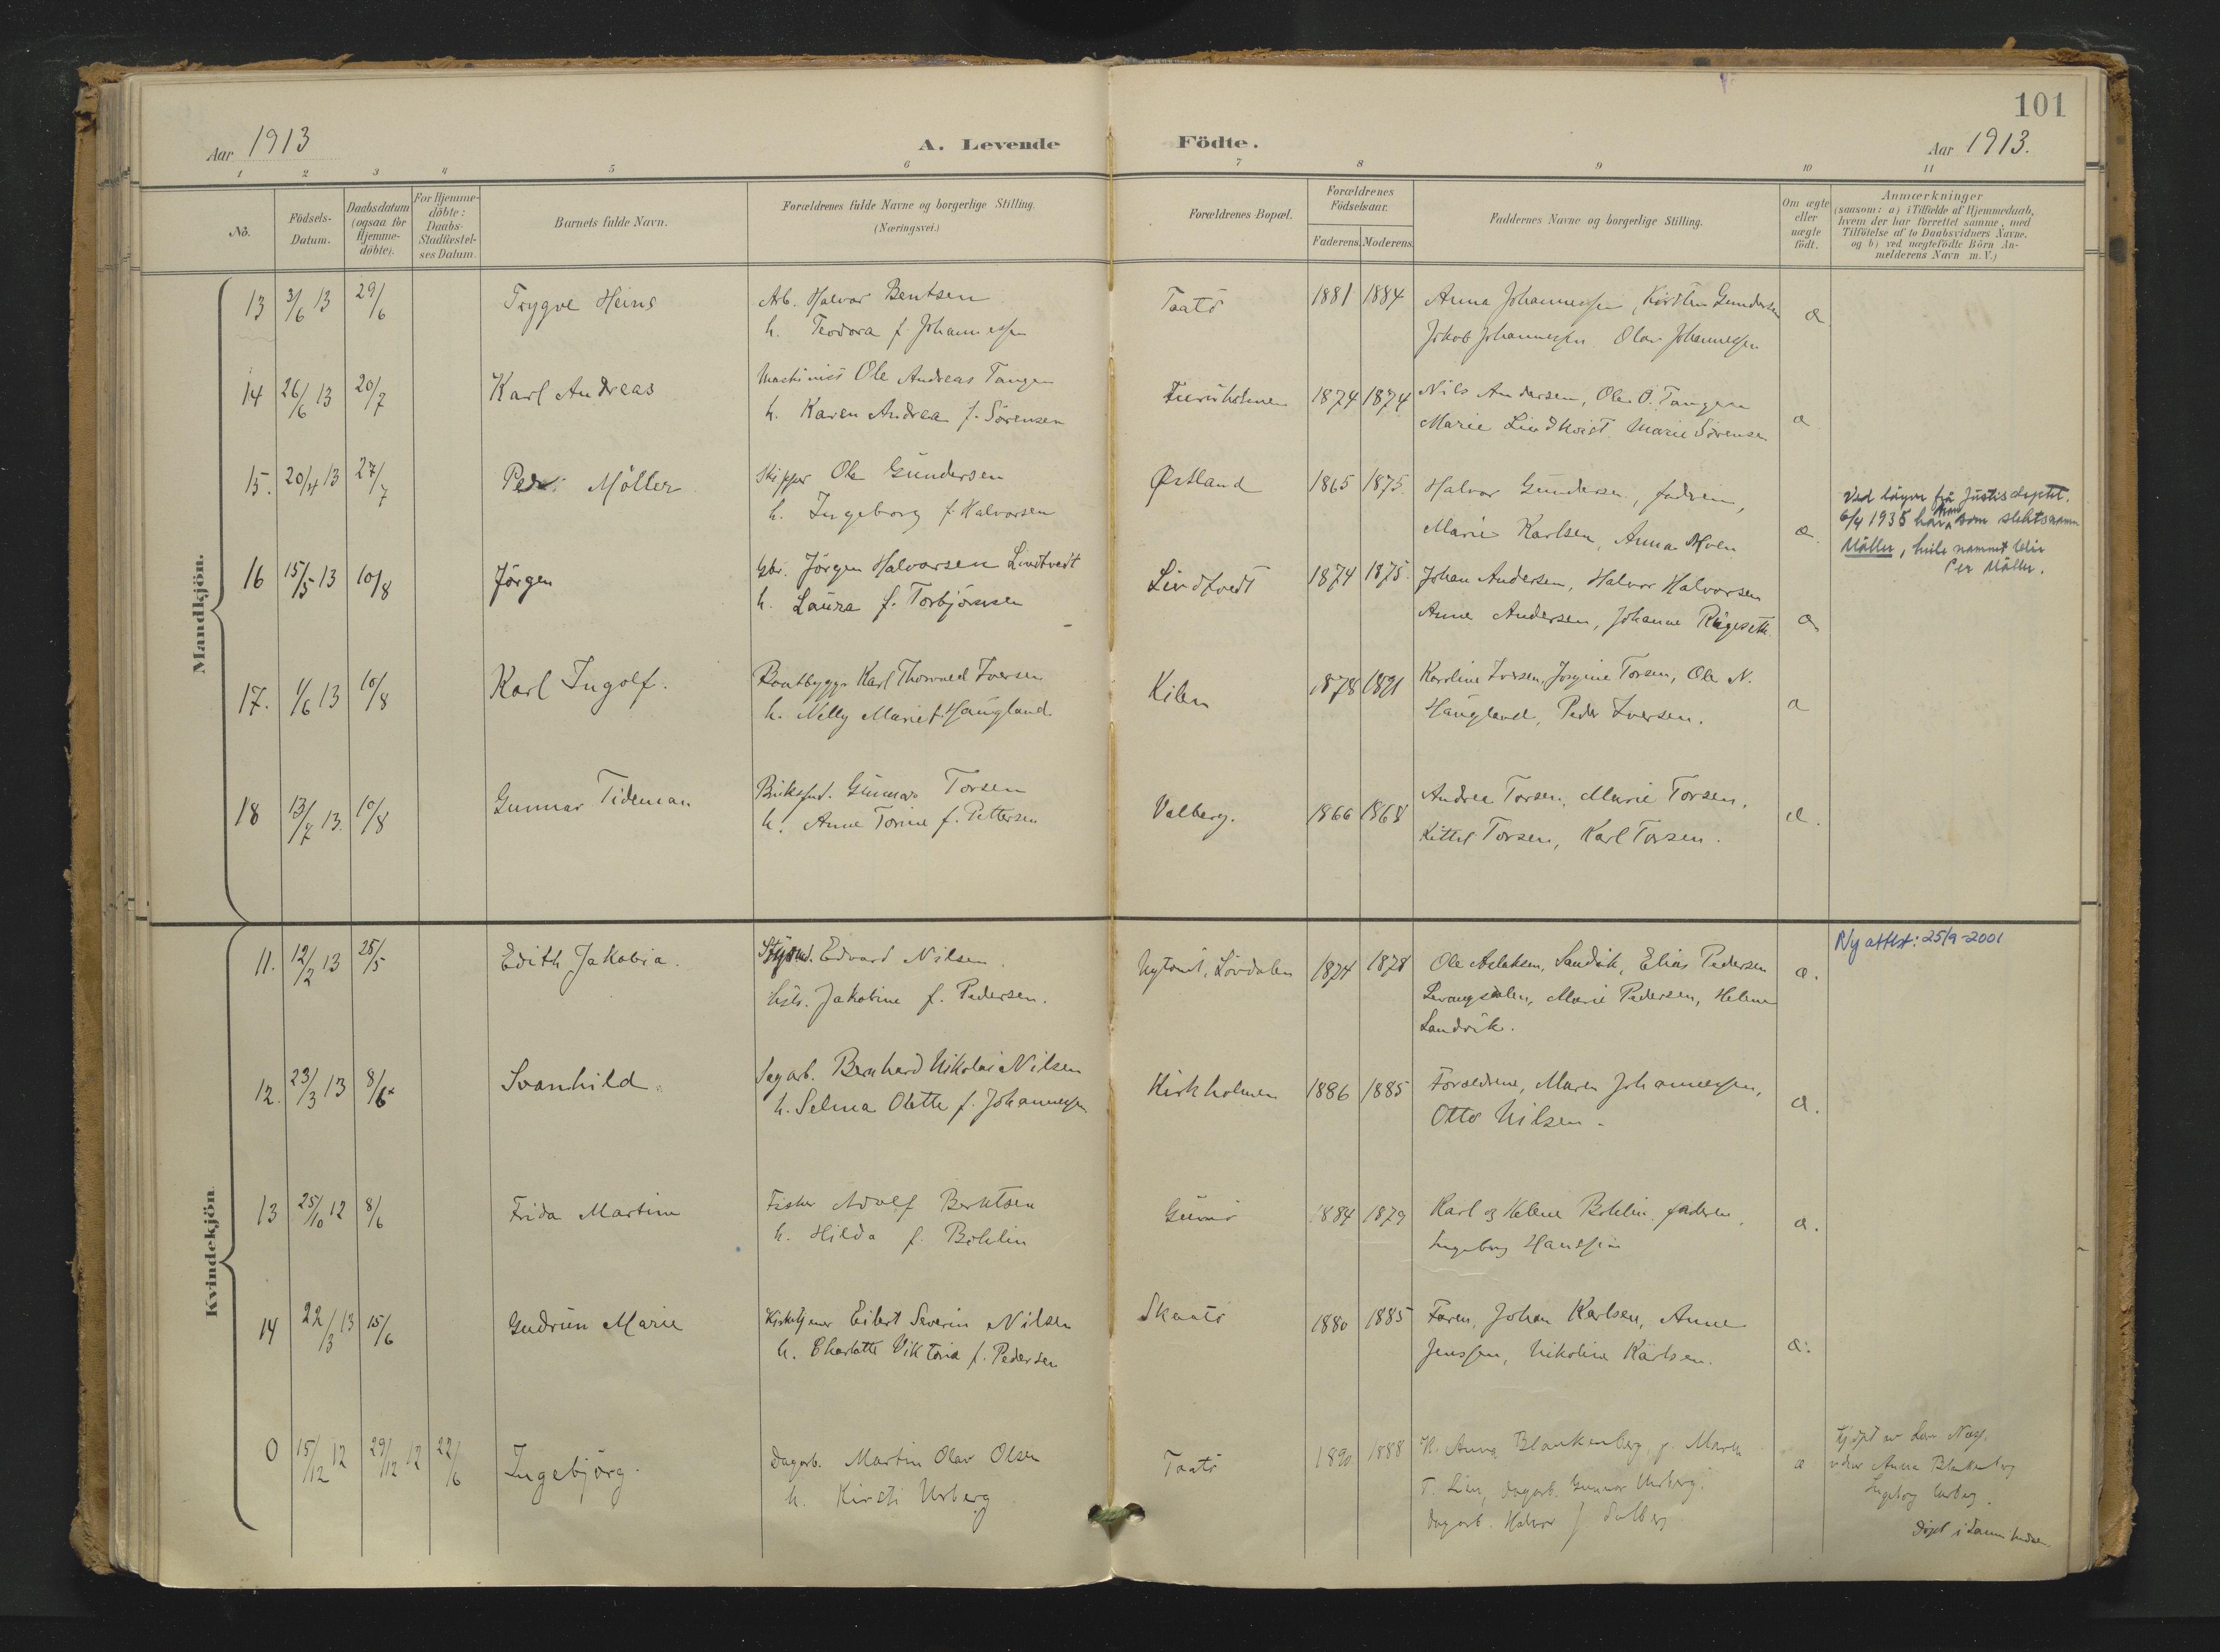 101
Aar 1913
A. Levende Födte.
Aar 1913.
1 2 3 4 5 6 7 8 9 10 11
No.
Födsels-
Datum.
Daabsdatum
(ogsaa for
Hjemme-
döbte).
For Hjemme-
döbte:
Daabs-
Stadfæstel-
ses Datum.
Barnets fulde Navn.
Forældrenes fulde Navne og borgerlige Stilling.
(Næringsvei.)
Forældrenes Bopæl.
Forældrenes
Födselsaar.
Faderens. Moderens.
Faddernes Navne og borgerlige Stilling.
Om ægte
eller
uægte
födt.
Anmærkninger
(saasom: a) i Tilfælde af Hjemmedaab,
hvem der har forrettet samme, med
Tilföielse af to Daabsvidners Navne.
og b) ved uægtefödte Börn An-
melderens Navn m. V.)
Mandkjön.
13 3/6 13 29/6 Trygve Heins Arb. Halvor Bentsen Taatö 1881 1884 Anna Johannessen, Kirstin Gundersen æ
h. Teodora f. Johannessen
Jakob Johannessen Olav Johannessen
14 26/6 13 20/7 Karl Andreas Maskinist Ole Andreas Tangen Furuholmen 1874 1874 Nils Andersen, Ole O. Tangen æ
h. Karen Andrea f. Sörensen
Marie Lindkvist. Marie Sörensen
15. 20/4 13 27/7 Peder Möller Skipper Ole Gundersen Østland 1865 1875. Halvor Gundersen, faderen, æ
h. Ingeborg f. Halvorsen
Marie Karlsen, Anna
Ved løyve frå Justisdeptet.
6/4 1935 har han som slektsnamn
Möller, heile namnet blir
Per Möller.
16 15/5 13 10/8 Jörgen Gbr. Jörgen Halvorsen Lindtvedt Lindtvedt 1874 1875. Johan Andersen, Halvor Halvorsen æ
h. Laura f. Torbjörnsen
Anne Andersen, Johanne
17. 1/6 13 10/8 Karl Ingolf. Baatbygger Karl Thorvald Iversen Kilen 1878 1891 Karoline Iversen, Jorgine Torsen, Ole N. æ
h. Nelly Marie f. Haugland.
Haugland, Peder Iversen.
18 13/7 13. 10/8 Gunnar Tideman Gunnar Torsen Valberg. 1866 1868 Andrea Torsen, Marie Torsen, æ.
h. Anne Torine f. Pettersen
Kittel Torsen, Karl Torsen.
Kvindekjön.
11. 12/2 13 25/5 Edith Jakobia. Styrmd. Edvard Nilsen. Nytomt, Lövdalen 1874 1878 Ole Aslaksen, Sandvik, Elias Pedersen æ. Ny attest: 25/9-2001
hstr. Jakobine f. Pedersen.
Levangsdalen, Marie Pedersen, Helene
Sandvik.
12. 23/3 13 8/6 Svanhild. Sagarb. Bernhard Nikolai Nilsen Kirkholmen 1886 1885 Forældrene, Maren Johannessen, æ.
h. Selma Olette f. Johannessen
Otto Nilsen.
13 25/10 12 8/6 Frida Martine Fisker Adolf Berntsen Gumö 1884 1879 Karl og Helene Böhlin, faderen, æ.
h. Hilda f. Böhlin
Ingeborg Hanssen
14 22/3 13 15/6 Gudrun Marie Kirketjener Eilert Severin Nilsen Skaatö 1880 1885 Faren, Johan Karlsen, Anne æ.
h. Charlotte Viktoria f. Pedersen
Jenssen, Nikoline Karlsen.
0 15/12 12 29/12 12 22/6 Ingebjörg. Dagarb. Martin Olav Olsen Taatö 1890 1888 H. Anna Blankenberg, p. Maren æ
h. Kirsti Urberg
T. Lien, Dagarb. Gunnar Urberg.
Dagarb. Halvor J. Dalberg
Hj.döpt av
Anna Blankenberg
Ingeborg Urberg.
Döpt i